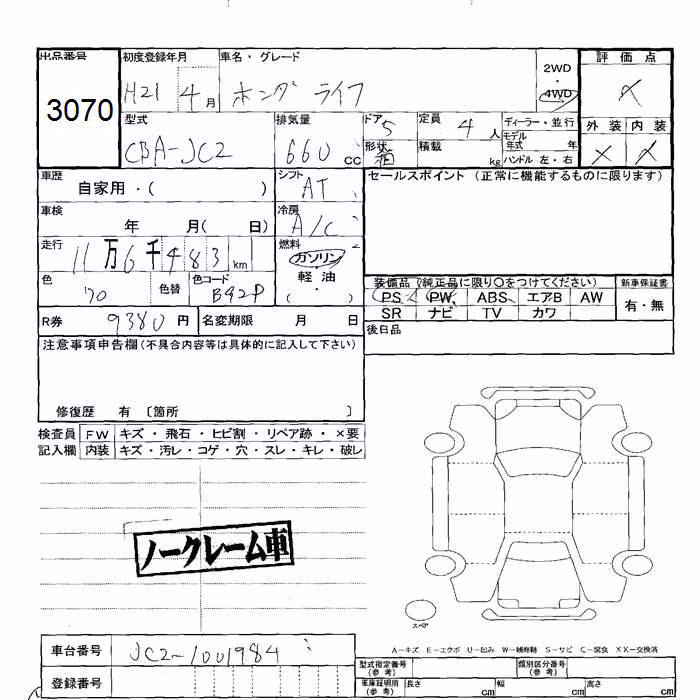 出品番号 初度登録年月 車名・グレード 2WD ・ 4WD 評価点
3070 H21 4月 ホンダ ライフ
型式 排気量 ドア 5 定員 4人 ディーラー・並行 外装 内装
CBA-JC2 660cc 形状 箱 積載 kg モデル年式 年 ハンドル 左・右
車歴 自家用・( ) シフト AT セールスポイント (正常に機能するものに限ります)
車検 年 月( 日) 冷房 A/C
走行 11万6千483km 燃料 ガソリン・軽油 ( ・ )
色 色替 色コード B92P 装備品 (純正品に限り○をつけてください) 新車保証書
PS PW ABS エアB AW 有・無
SR ナビ TV カワ
R券 9380円 名変期限 月 日 後日品
注意事項申告欄(不具合内容等は具体的に記入して下さい)
修復歴 有 〔箇所 〕
検査員 FW キズ・飛石・ヒビ割・リペア跡・×要
記入欄 内装 キズ・汚レ・コゲ・穴・スレ・キレ・破レ
ノークレーム車
スペア
A-キズ E-エクボ U-凹み W-補修跡 S-サビ C-腐食 XX-交換済
車台番号 JC2-1001984
登録番号
型式指定番号 (参考) 類別区分番号 (参考)
車庫証明用 (参考) 長さ cm 幅 cm 高さ cm